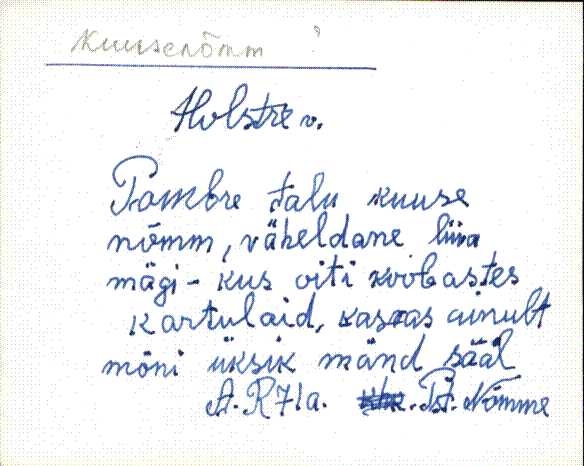 Kuusenõmm ?
Holstre v.
Pombre talu kuuse
nõmm, väheldane liiva
mägi - kus oiti koobastes
kartulaid, kasvas ainult
mõni üksik mänd sääl
A. R 71a. . Pst. Nõmme